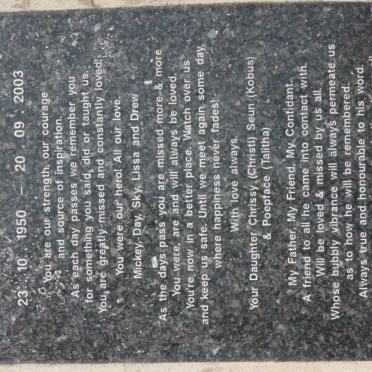 23 10 1950 – 20 09 2003
You are our strength, our courage
and source of inspiration.
As each day passes we remember you
for something you said, did or taught us.
You are greatly missed and constantly loved!
You were our hero! All our love.
Mickey, Day, Sky, Lissa and Drew
As the days pass you are missed more & more
You were, are and will always be loved.
You're now in a better place. Watch over us
and keep us safe. Until we meet again some day,
where happiness never fades!
With love always
Your Daughter Chrissy, (Christi) Seun (Kobus)
& Poopface (Talitha)
My Father, My Friend, My Confidant.
A friend to all he came into contact with.
Will be loved & missed by us all.
Whose bubbly vibrance will always permeate us
as to how he will be remembered.
Always true and honourable to his word.